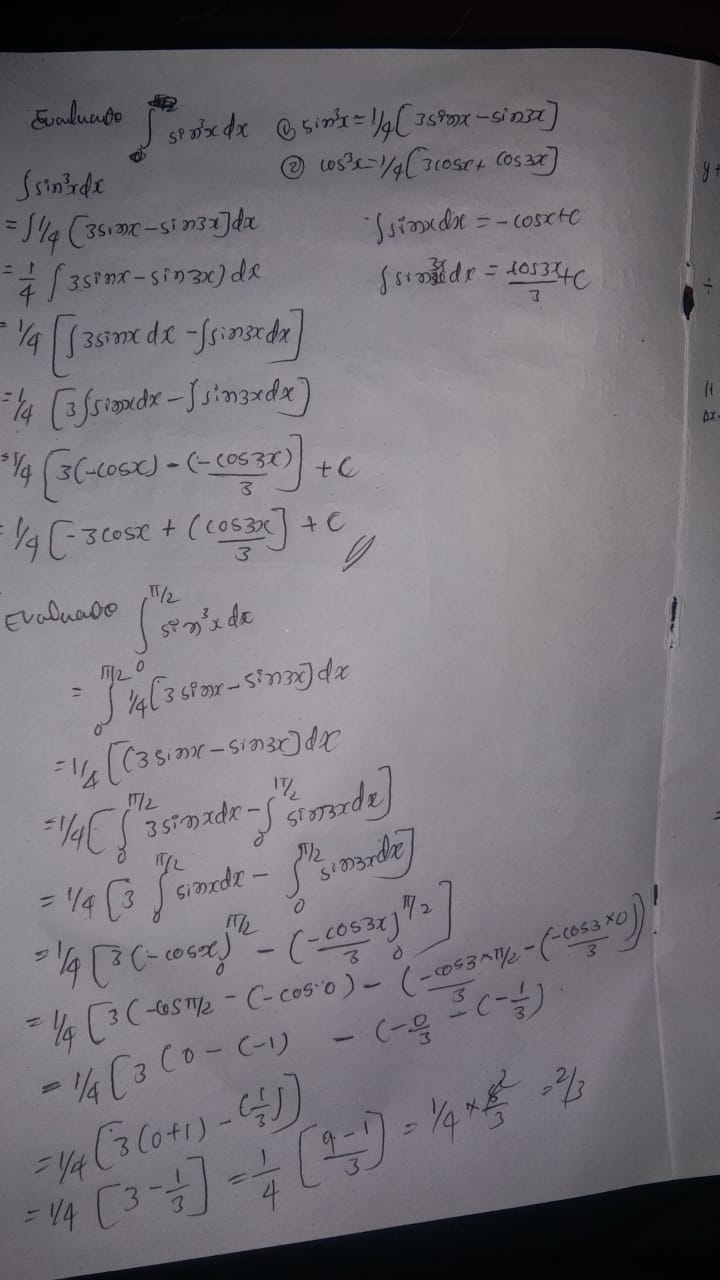 Evaluate ∫ sin³x dx ① sin³x = 1/4 [3sinx - sin3x]
② cos³x = 1/4 [3cosx + cos3x]
∫ sin³x dx
= ∫ 1/4 [3sinx - sin3x] dx ∫ sinx dx = -cosx + c
= 1/4 ∫ 3sinx - sin3x) dx ∫ sin3x dx = cos3x/3 + c
= 1/4 [∫ 3sinx dx - ∫ sin3x dx]
= 1/4 [3 ∫ sinx dx - ∫ sin3x dx]
= 1/4 [3(-cosx) - (-cos3x)/3] + c
= 1/4 [-3cosx + (cos3x/3] + c
Evaluate ∫₀^π/2 sin³x dx
= ∫₀^π/2 1/4 [3sinx - sin3x] dx
= 1/4 [(3sinx - sin3x] dx
= 1/4 [∫₀^π/2 3sinx dx - ∫₀^π/2 sin3x dx]
= 1/4 [3 ∫₀^π/2 sinx dx - ∫₀^π/2 sin3x dx]
= 1/4 [3(-cosx)₀^π/2 - (-cos3x/3)₀^π/2]
= 1/4 [3(-cosπ/2 - (-cos0) - (-cos3×π/2/3 - (-cos3×0/3))
= 1/4 [3(0 - (-1) - (-0/3 - (-1/3)
= 1/4 [3(0+1) - (1/3)]
= 1/4 [3 - 1/3] = 1/4 [9-1/3] = 1/4 × 8/3 2 = 2/3